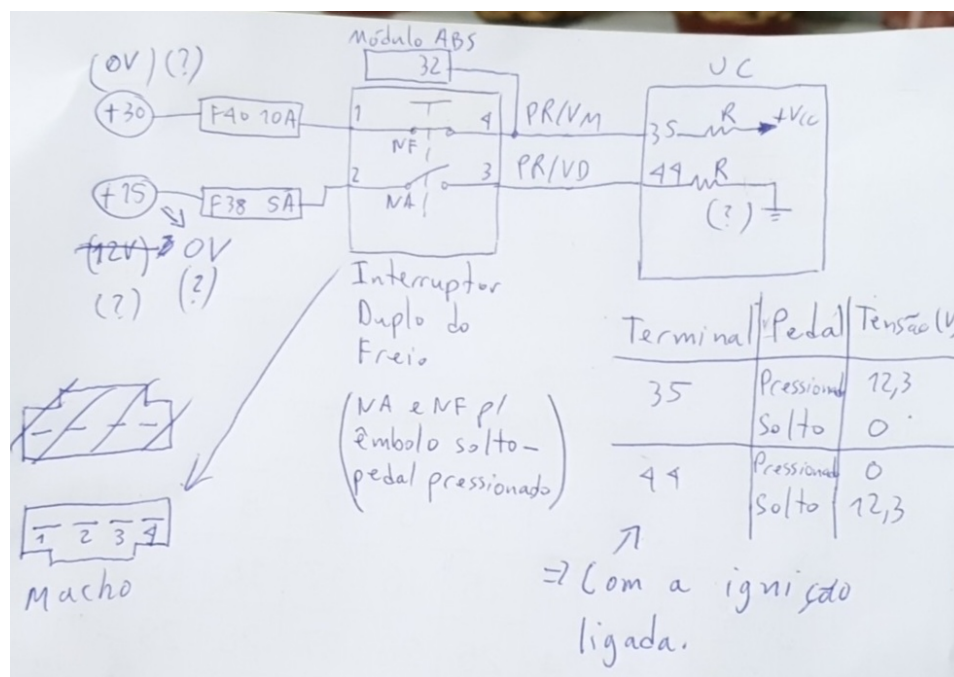 Módulo ABS
32
(0V) (?)
+30
F40 10A
1
4
NF
PR/VM
UC
35
R
+Vcc
+15
F38 5A
2
3
NA
PR/VD
44
R
(?)
(12V) 0V
(?) (?)
Interruptor
Duplo do
Freio
(NA e NF p/
êmbolo solto-
pedal pressionado)
Terminal Pedal Tensão (V
35 Pressionad 12,3
Solto 0
44 Pressionad 0
Solto 12,3
1 2 3 4
Macho
=> Com a ignição
ligada.